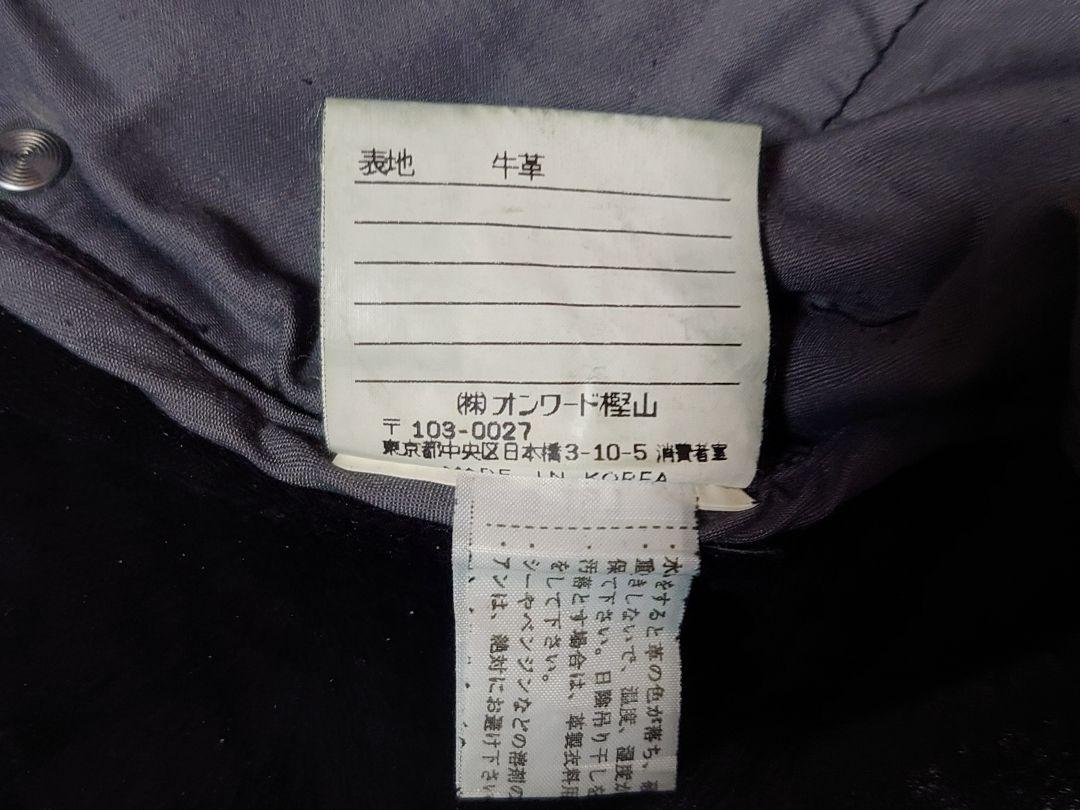 表地 牛革
㈱オンワード樫山
〒103-0027
東京都中央区日本橋3-10-5 消費者室
MADE IN KOREA
・水をすると革の色が落ち、
・重きしないで、温度、湿度
保て下さい。日陰吊り干しを
・汚落とす場合は、革製衣料用
をして下さい。
・シーやベンジンなどの溶剤の
・アンは、絶対にお避け下さい